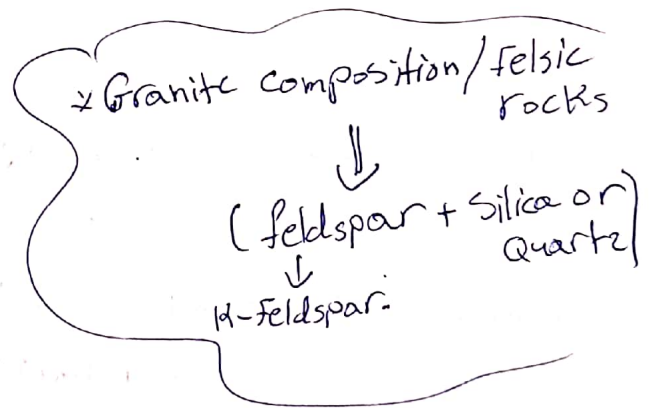 * Granite composition/felsic
rocks
⇓
(feldspar + Silica or
Quartz)
↓
K-Feldspar.